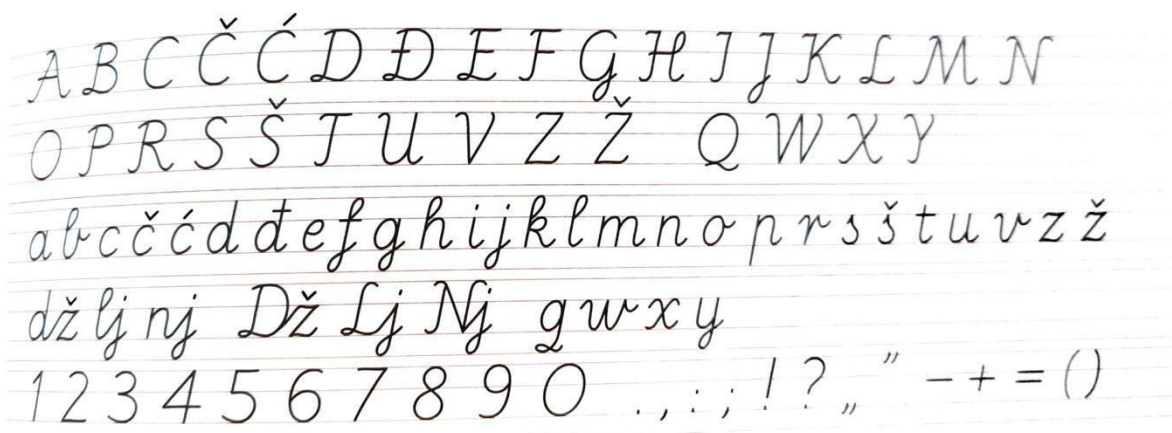 A B C Č Ć D Đ E F G H I J K L M N
O P R S Š T U V Z Ž Q W X Y
a b c č ć d đ e f g h i j k l m n o p r s š t u v z ž
dž lj nj Dž Lj Nj q w x y
1 2 3 4 5 6 7 8 9 0 . , : ; ! ? „ ” - + = ( )